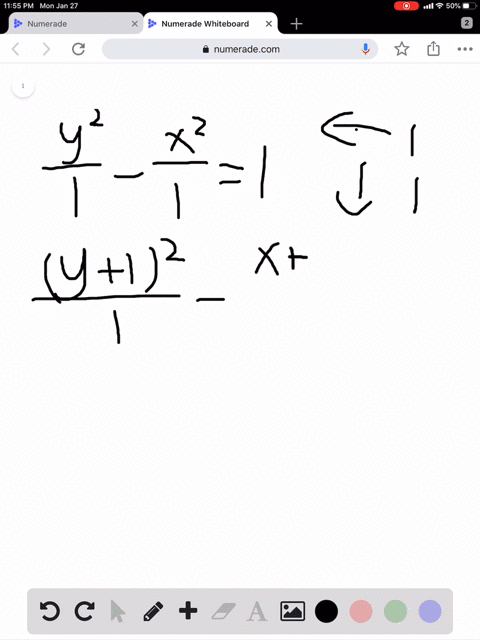 11:55 PM Mon Jan 27
50%
Numerade
Numerade Whiteboard
2
numerade.com
1
y²/1 - x²/1 = 1
← 1
↓ 1
(y+1)²/1 - x+
A